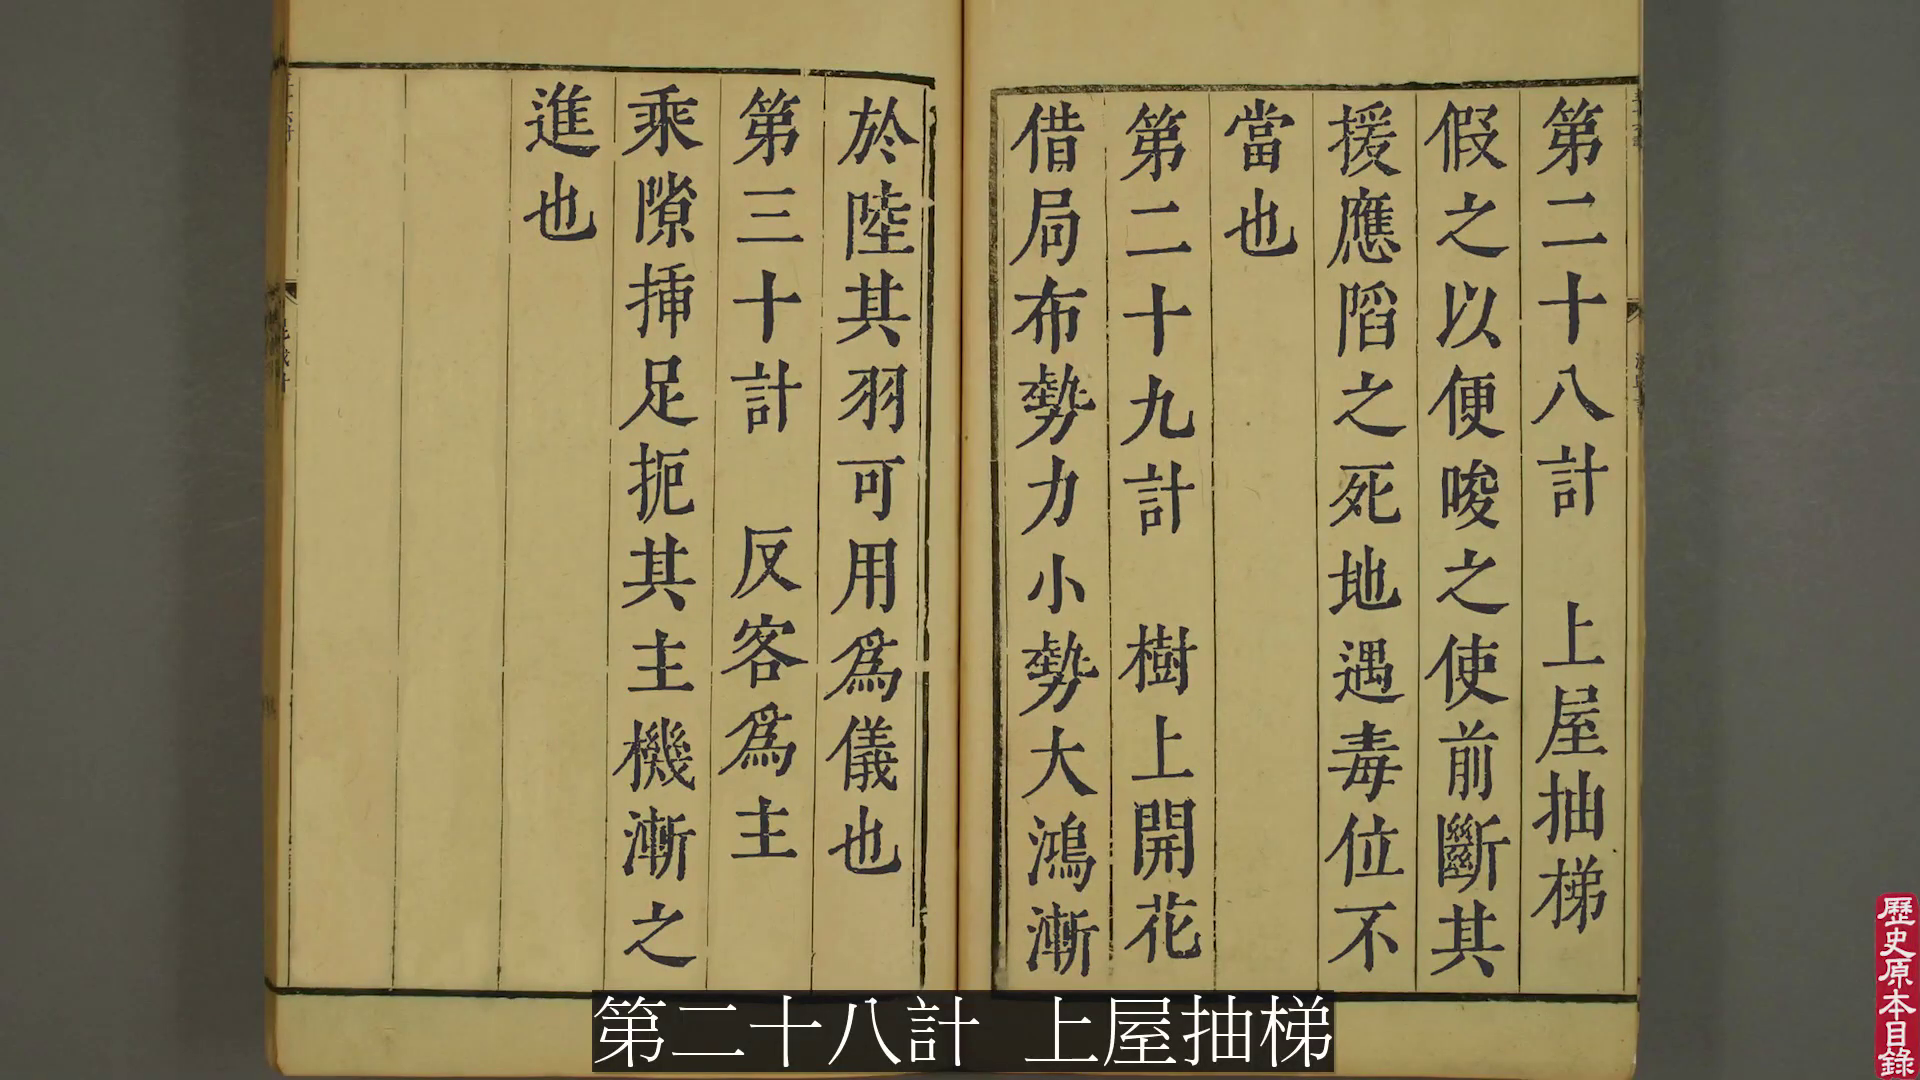 第二十八計　上屋抽梯
假之以便唆之使前斷其
援應陷之死地遇毒位不
當也
第二十九計　樹上開花
借局布勢力小勢大鴻漸
於陸其羽可用爲儀也
第三十計　反客爲主
乘隙挿足扼其主機漸之
進也
第二十八計 上屋抽梯
歷史原本目錄